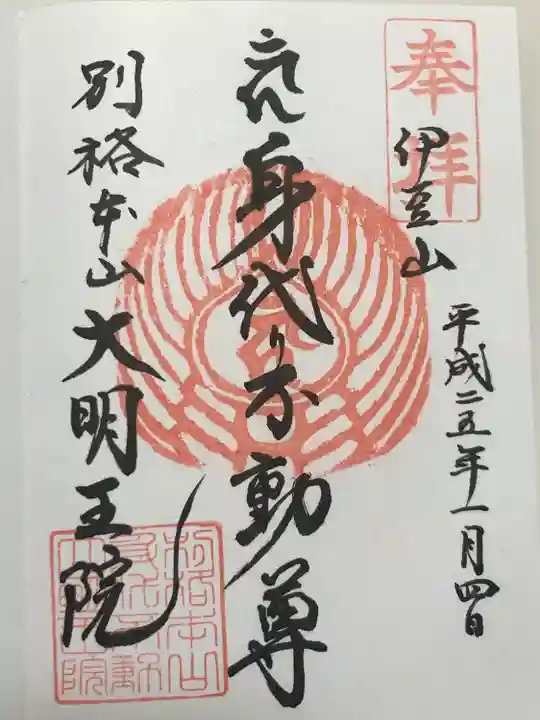 奉拝
伊豆山
平成二五年一月四日
身代り不動尊
別格本山大明王院